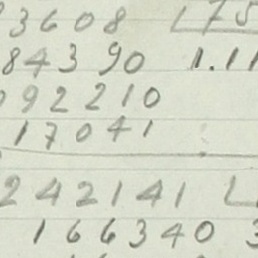 3608 175
84390 1.11
92210
17041
242141
166340 3